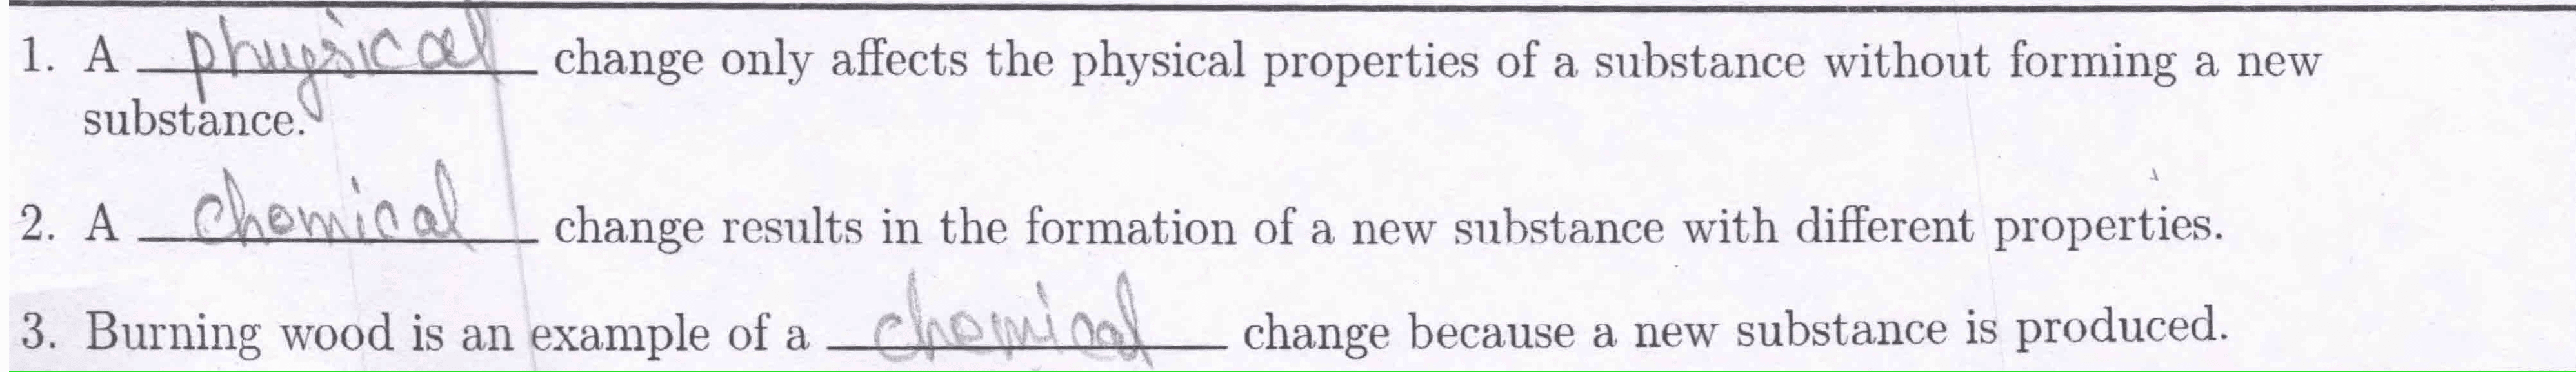 1. A physical change only affects the physical properties of a substance without forming a new
substance.
2. A chemical change results in the formation of a new substance with different properties.
3. Burning wood is an example of a chemical change because a new substance is produced.